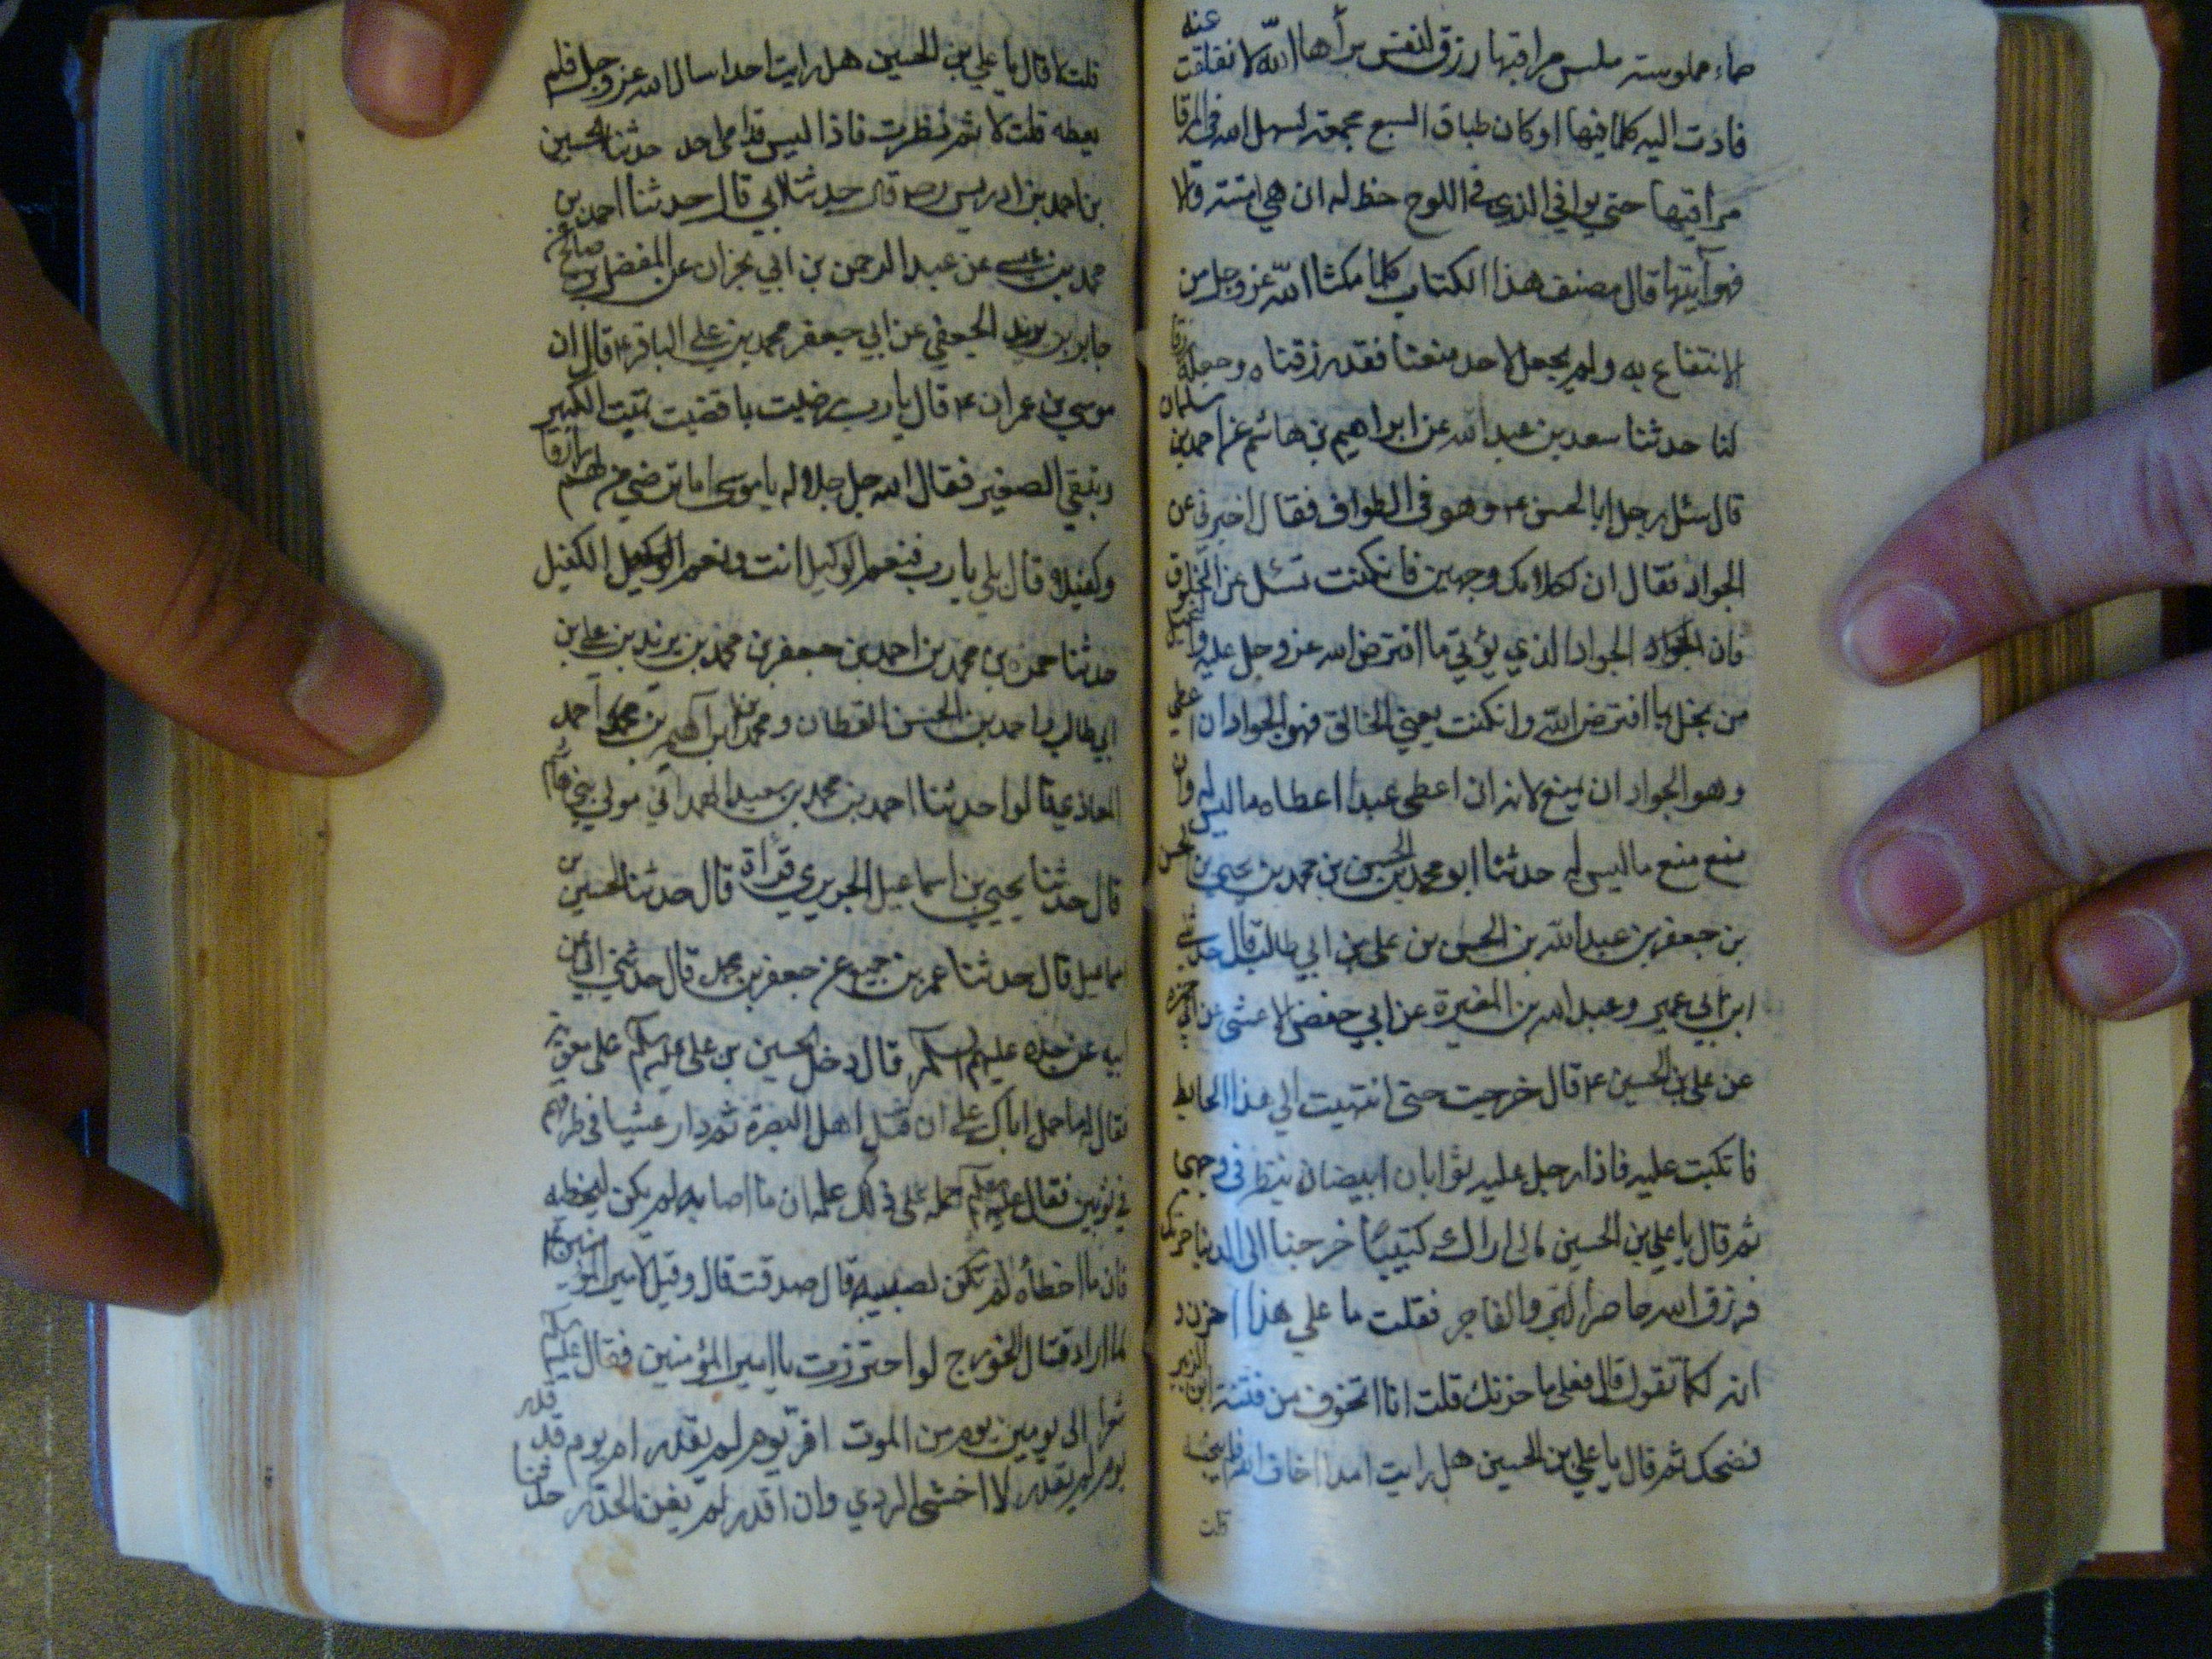 صماء ملموسة ملس مراقيها رزق لنفس براها الله لانفلقت عنه
فادت اليه كلما فيها او كان طباق السبع مجمعة لسهل الله في المرقا
مراقيها حتي يوافي الذي في اللوح خط له ان هي اتته والا
فهو آتيها قال مصنف هذا الكتاب كلما مكننا الله عز وجل من
الانتفاع به ولم يجعل لاحد منعنا فقد رزقناه وجعله رزقا
لنا حدثنا سعد بن عبد الله عن ابراهيم بن هاشم عن احمد بن سلمان
قال سئل رجل ابا الحسن ع وهو في الطواف فقال اخبرني عن
الجواد فقال ان لكلامك وجهين فانكنت تسئل عن المخلوق
فان الجواد الذي يؤتي ما افترض الله عز وجل عليه والبخيل
من بخل بما افترض الله وانكنت يعني الخالق فهو الجواد ان اعطى
وهو الجواد ان منع لانه ان اعطى عبدا اعطاه ما ليس له وان
منع منع ما ليس له حدثنا ابو محمد الحسن بن محمد بن يحيي بن الحسن
بن جعفر بن عبد الله بن الحسين بن علي بن ابي طالب قال حدثني
ابن ابي عمير وعبد الله بن المغيرة عن ابي حفص الاعشى عن ابي حمزة
عن علي بن الحسين ع قال خرجت حتى انتهيت الي هذا الحايط
فاتكيت عليه فاذا رجل عليه ثوابان ابيضان ينظر في وجهي
ثم قال يا علي بن الحسين مالي اراك كئيبا خرجنا الى الدنيا حزنك
فرزق الله حاضر للبر والفاجر فقلت ما علي هذا احزن و
انه لكما تقول قال فعلى ما حزنك قلت انا اتخوف من فتنة ابن الزبير
فضحك ثم قال يا علي بن الحسين هل رايت احدا خاف الله فلم ينجه
قلت
قلت لا قال يا علي بن الحسين هل رايت احدا سال الله عز وجل فلم
يعطه قلت لا ثم نظرت فاذا ليس قدامي احد حدثنا الحسين
بن احمد بن ادريس رضه قال حدثنا ابي قال حدثنا احمد بن
محمد بن عيسى عن عبد الرحمن بن ابي نجران عن المفضل بن صالح عن
جابر بن يزيد الجعفي عن ابي جعفر محمد بن علي الباقر ع قال ان
موسي بن عمران ع قال يا رب رضيت بما قضيت تميت الكبير
وتبقي الصغير فقال الله جل جلاله يا موسى اما ترضي مني لهم رازقا
وكفيلا قال بلي يا رب فنعم الوكيل انت ونعم الكفيل
حدثنا حمزه بن محمد بن احمد بن جعفر بن محمد بن يزيد بن علي بن
ابي طالب و احمد بن الحسن القطان و محمد بن ابراهيم بن احمد
المعاذي قالوا حدثنا احمد بن محمد بن سعيد الهمداني مولى بني هاشم
قال حدثنا يحيي بن اسماعيل الجريري قراة قال حدثنا الحسين بن
اسماعيل قال حدثنا عمر بن جميع عن جعفر بن محمد قال حدثني ابي عن
ابيه عن جده عليهم السلم قال دخل الحسين بن علي عليه السلم على معوية
فقال له ما حمل اباك على ان قتل اهل البصرة ثم دار عشيا في طرقهم
في ثوبين فقال عليه السلم حمله على ذلك علمه ان ما اصابه لم يكن ليخطيه
فان ما اخطأه لم تكن لصيبه قال صدقت قال وقيل لامير المؤمنين ع
لما اراد قتال الخورج لو احترزت يا امير المؤمنين فقال عليه السلم
شعرا اى يومين يوم من الموت افر يوم لم يقدر ام يوم قد قدر
يوم لم يقدر لا اخشى الردي وان اقدر لم يغن الحذر حدثنا